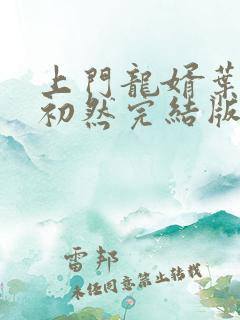 上門龍婿葉
初然完結版
雷邦
未经同意禁止转载